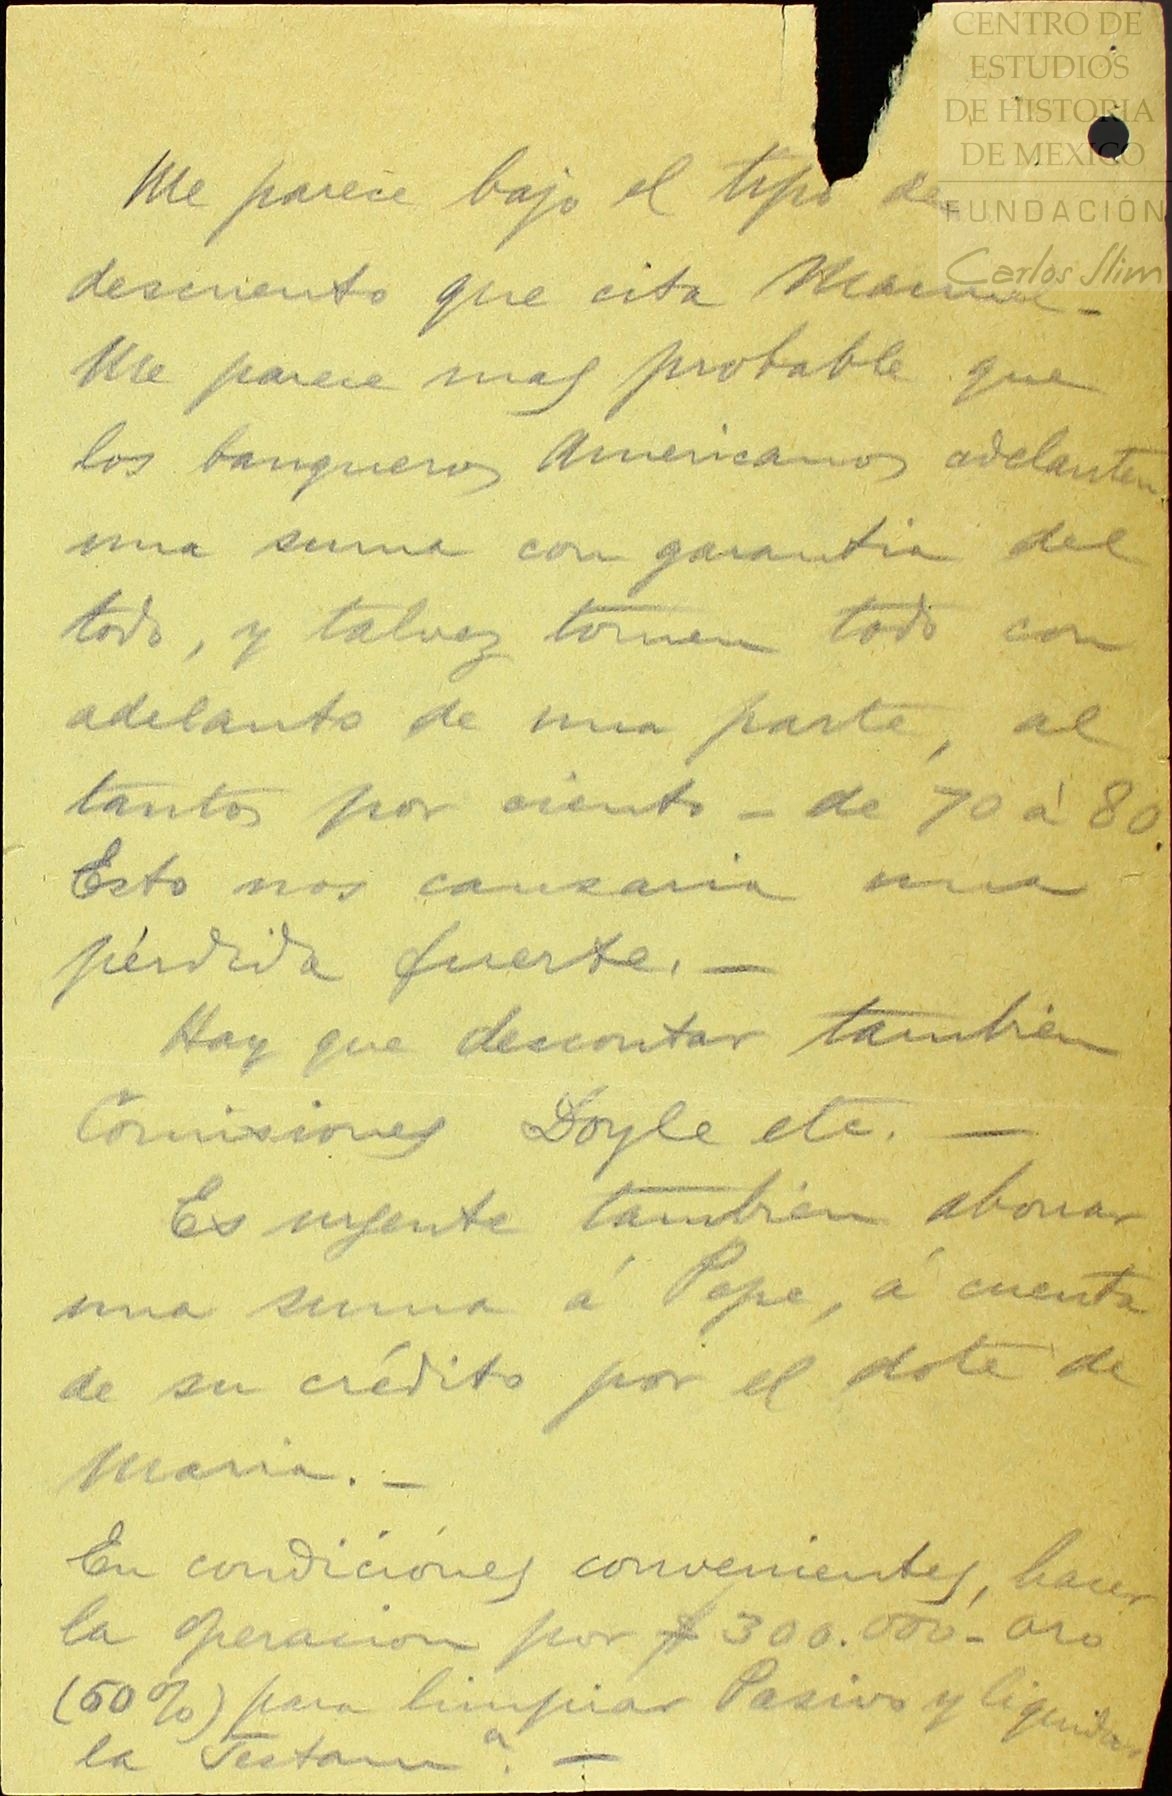 CENTRO DE
ESTUDIOS
DE HISTORIA
DE MEXICO
FUNDACIÓN
Carlos Slim
Me parece bajo el tipo de
descuento que cita Manuel_
Me parece mas probable que
los banqueros Americanos adelanten
una suma con garantia del
todo, y talvez tomen todo con
adelanto de una parte, al
tantos por ciento _ de 70 á 80.
Esto nos causaria una
pérdida fuerte. _
Hay que descontar tambien
Comisiones Doyle etc. _
Es urgente tambien abonar
una suma á Pepe, á cuenta
de su crédito por el dote de
Maria. _
En condiciónes convenientes, hacer
la Operacion por $ 300.000 - oro
(60%) para limpiar Pasivo y liquidar
la Testamª. _